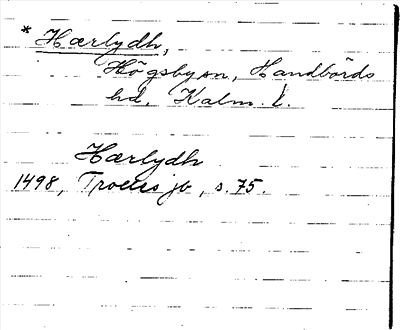 * Hærlydh,
Högsby sn, Handbörds
hd, Kalm. l.
Hærlydh
1498, Troels jb, s. 75.